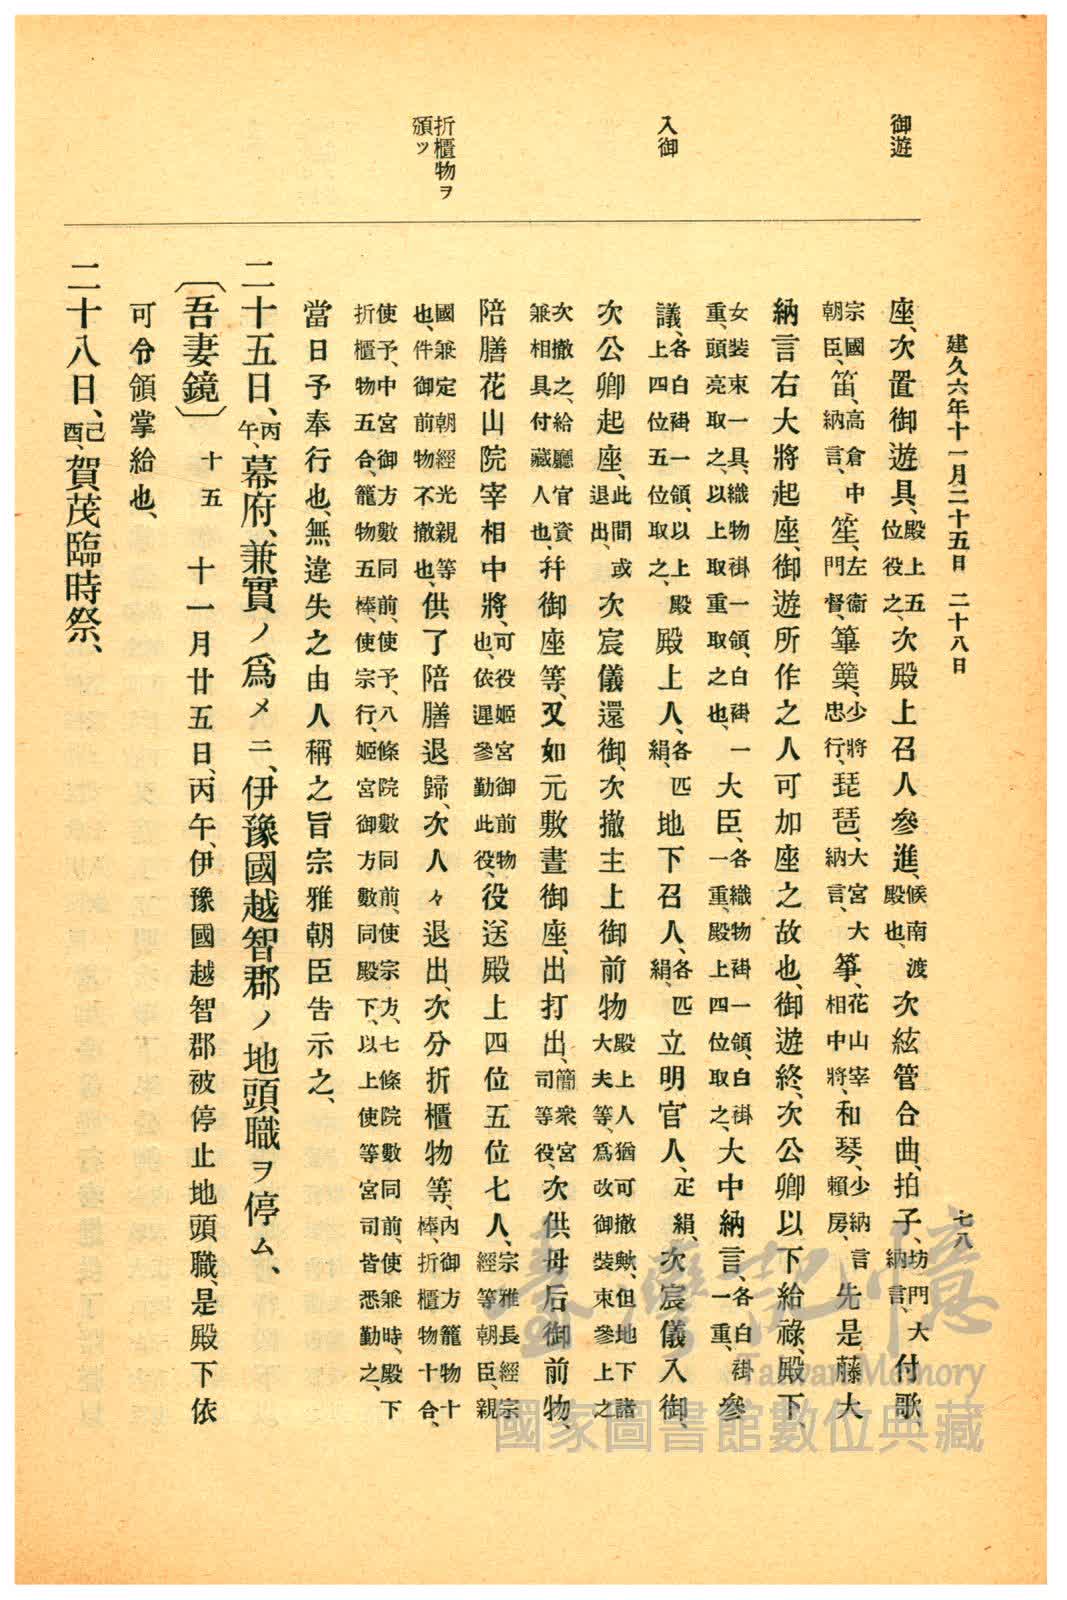 建久六年十一月二十五日　二十八日　七八
御遊
入御
折櫃物ヲ
頒ツ
座、次置御遊具、殿上五位役之、次殿上召人參進、候南渡殿也、次絃管合曲、拍子、坊門大納言、付歌、
宗國朝臣、笛、高倉中納言、笙、左衞門督、篳篥、少將忠行、琵琶、大宮大納言、箏、花山宰相中將、和琴、少納言賴房、先是藤大
納言右大將起座、御遊所作之人可加座之故也、御遊終、次公卿以下給祿、殿下、
女裝束一具、織物褂一領、白褂一重、頭亮取之、以上取重取之也、大臣、各織物褂一領、白褂一重、殿上四位取之、大中納言、各白褂一重、參
議、各白褂一領、以上殿上四位五位取之、殿上人、各匹絹、地下召人、各匹絹、立明官人、疋絹、次宸儀入御、
次公卿起座、此間或退出、次宸儀還御、次撤主上御前物、殿上人猶可撤歟、但地下諸大夫等、爲改御裝束參上之
次撤之、給廳官資兼相具付藏人也、幷御座等、又如元敷晝御座、出打出、簡衆宮司等役、次供母后御前物、
陪膳花山院宰相中將、可役姬宮御前物也、依遲參勤此役、役送殿上四位五位七人、宗雅長經宗經等朝臣、親
國兼定朝經光親等也、件御前物不撤也、供了陪膳退歸、次人々退出、次分折櫃物等、內御方籠物十棒、折櫃物十合、
使予、中宮御方數同前、使予、八條院數同前、使宗方、七條院數同前、使兼時、殿下折櫃物五合、籠物五棒、使宗行、姬宮御方數同殿下、以上使等宮司皆悉勤之、
當日予奉行也、無違失之由人稱之旨宗雅朝臣吿示之、
二十五日、丙午、幕府、兼實ノ爲メニ、伊豫國越智郡ノ地頭職ヲ停ム、
〔吾妻鏡〕十五　十一月廿五日、丙午、伊豫國越智郡被停止地頭職、是殿下依
可令領掌給也、
二十八日、己酉、賀茂臨時祭、
臺灣記憶
Taiwan Memory
國家圖書館數位典藏